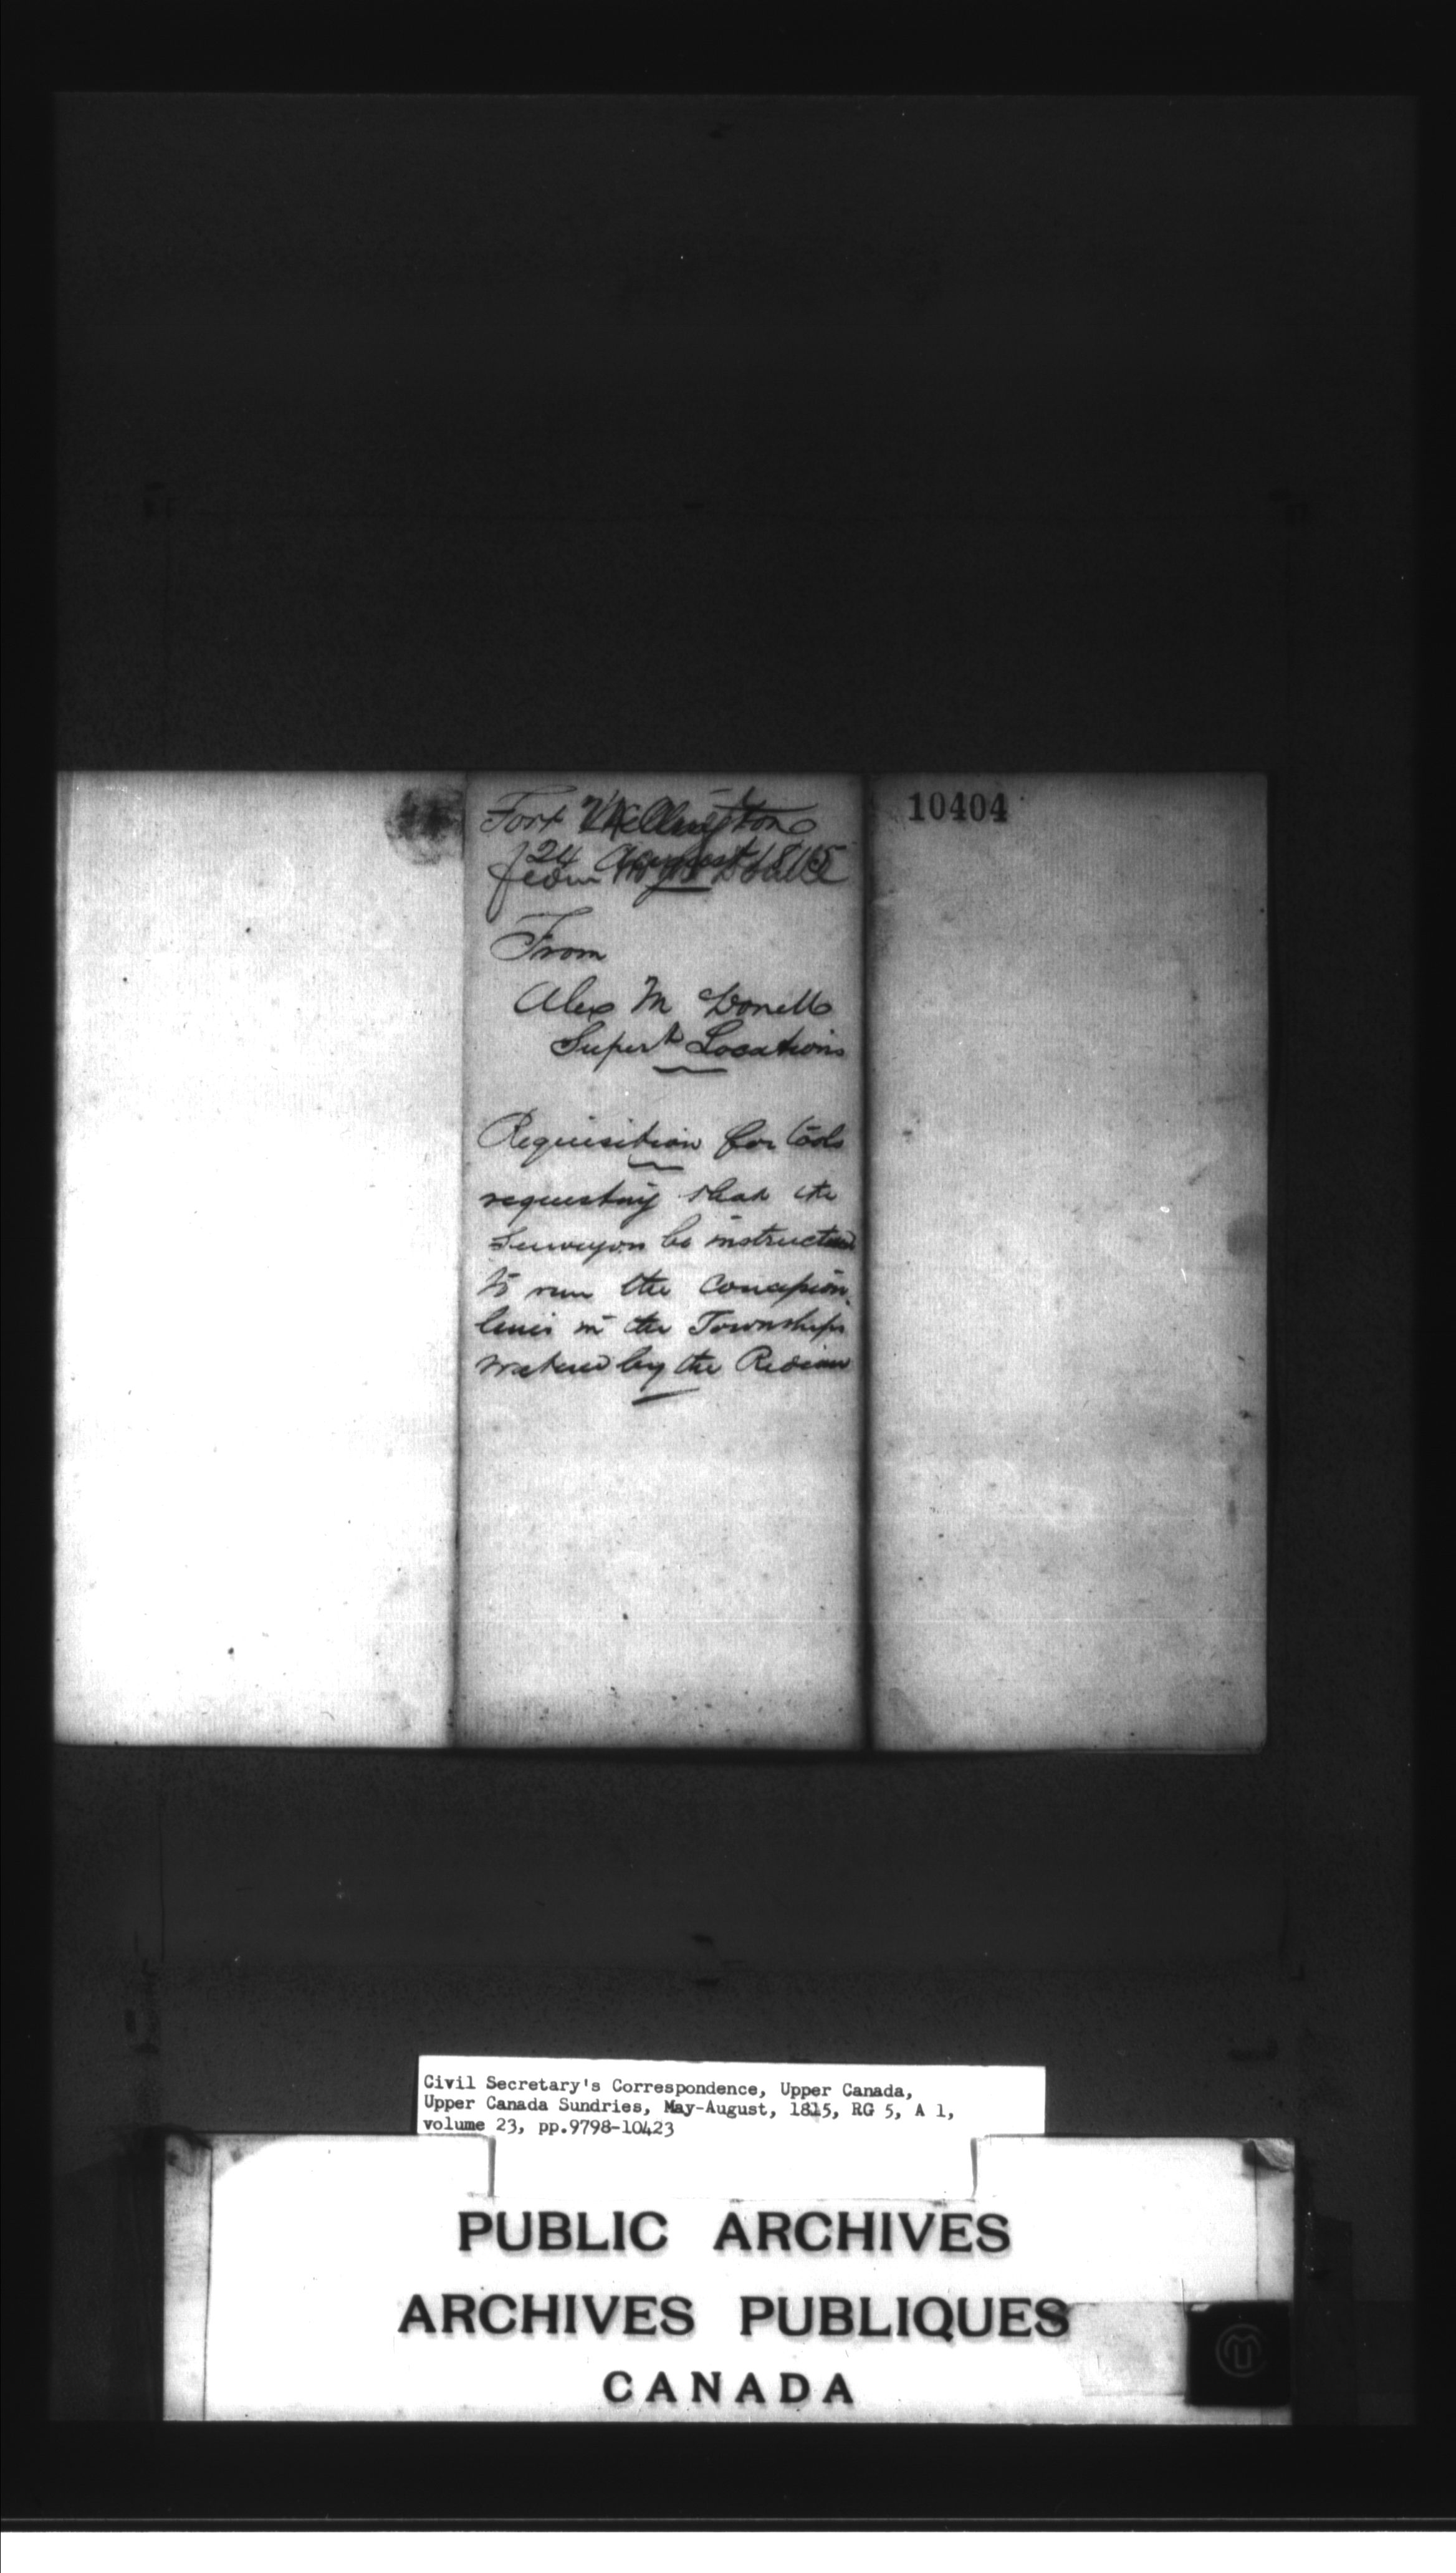 10404
Fort Wellington
24 August 1815
From
Alex McDonell
Supert Locations
Requisition for tools
requesting that the
Surveyors be instructed
to run the Concession
lines in the Townships
watered by the Redeau
Civil Secretary's Correspondence, Upper Canada,
Upper Canada Sundries, May-August, 1815, RG 5, A 1,
volume 23, pp.9798-10423
PUBLIC ARCHIVES
ARCHIVES PUBLIQUES
CANADA